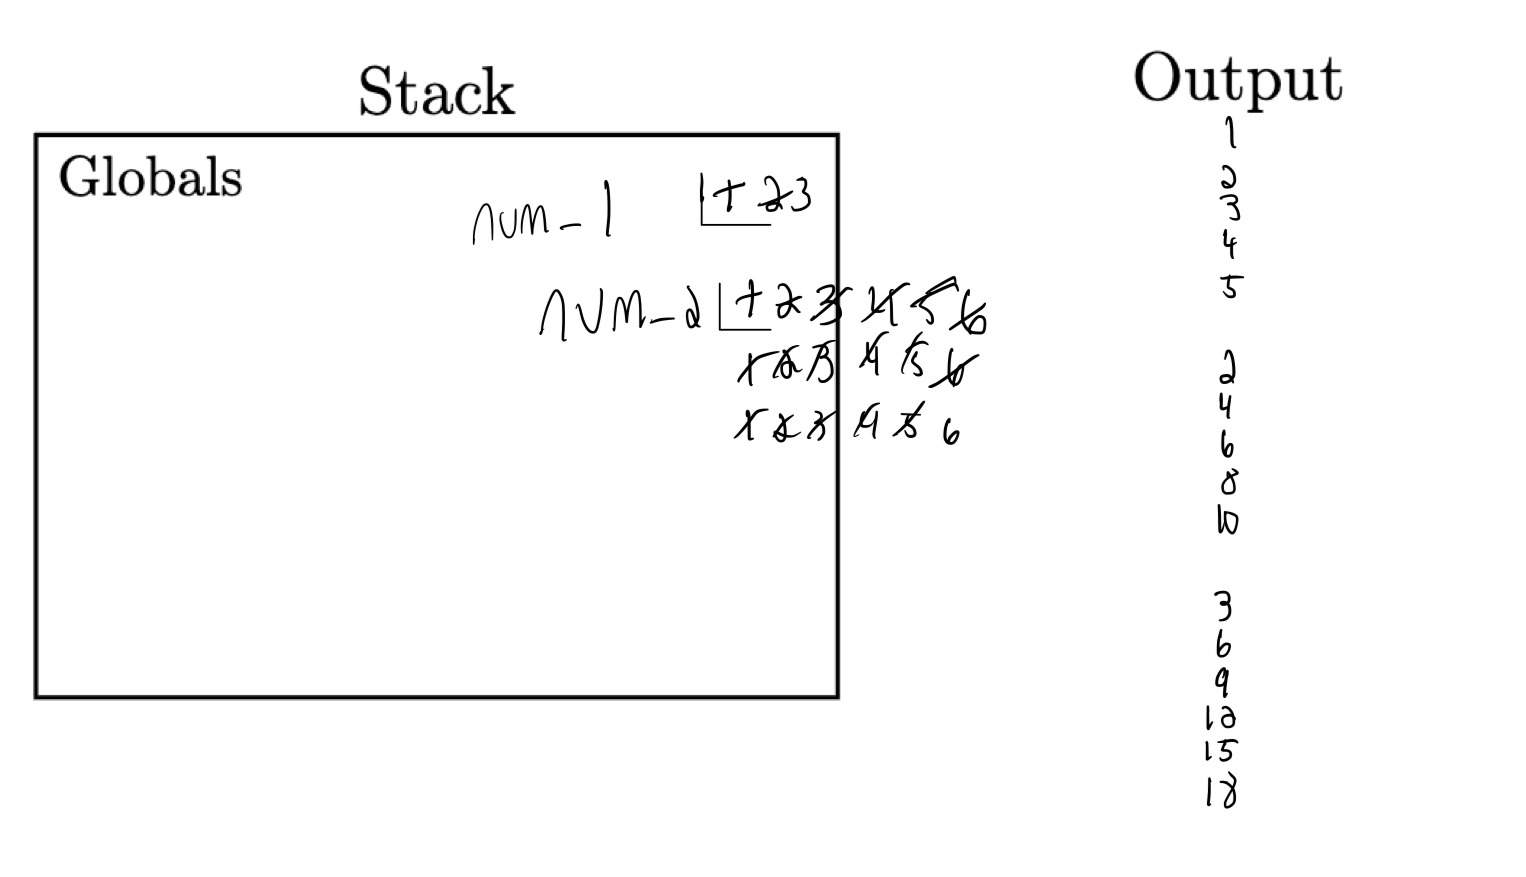 Stack
Globals
num_1 1 2 3
num_2 1 2 3 4 5 6
1 2 3 4 5 6
1 2 3 4 5 6
Output
1
2
3
4
5
2
4
6
8
10
3
6
9
12
15
18